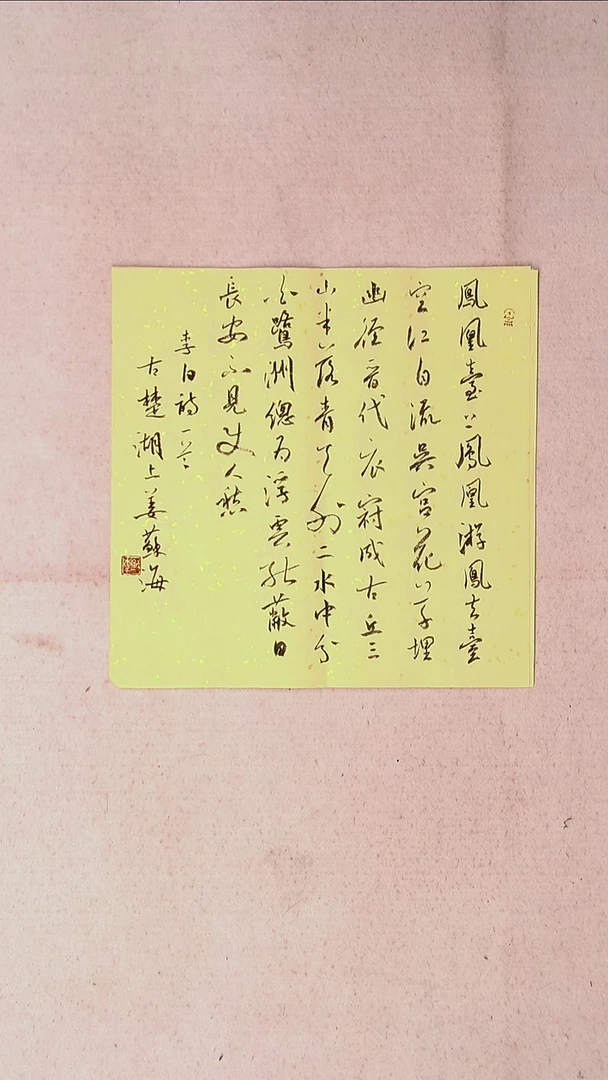 鳳凰臺上鳳凰游鳳去臺
空江自流吳宮花草埋
幽徑晉代衣冠成古丘三
山半落青天外二水中分
白鷺洲總為浮雲能蔽日
長安不見使人愁
李白詩一首
古楚湖上姜蘇海